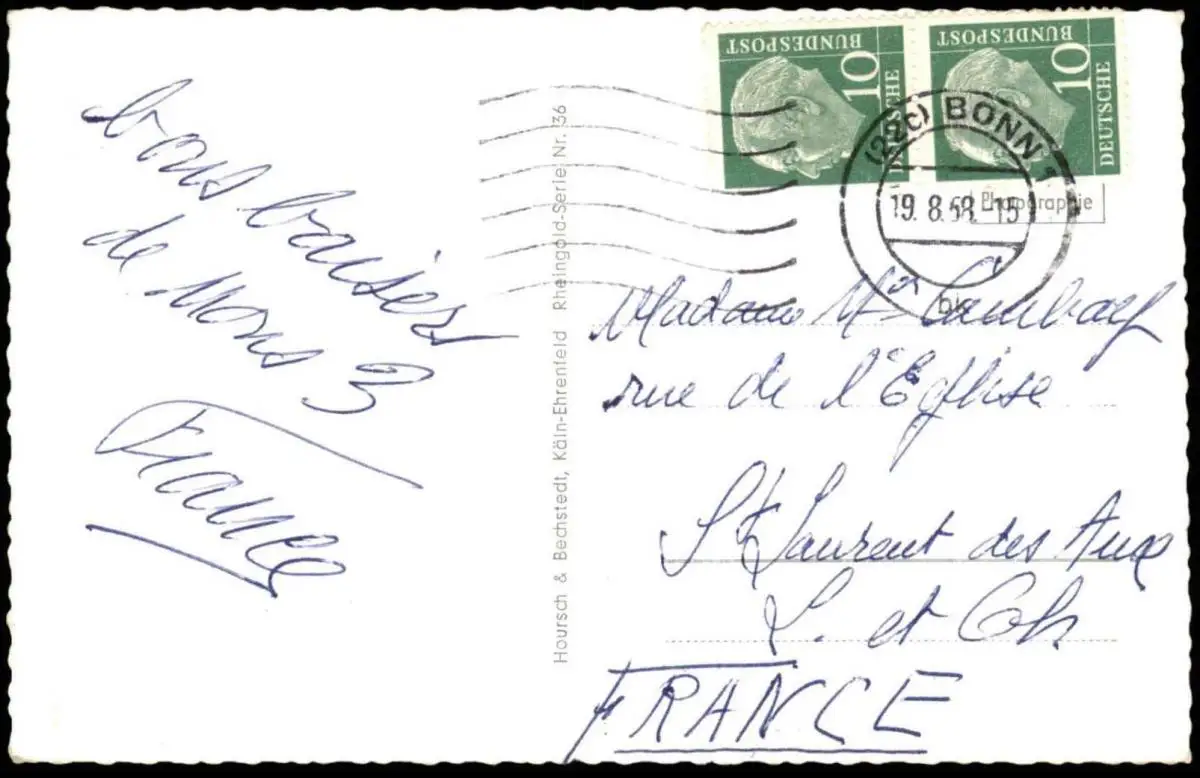 bons baisers
de nous 3
France
Hoursch & Bechstedt, Köln-Ehrenfeld Rheingold-Serie Nr. 36
DEUTSCHE BUNDESPOST 10
DEUTSCHE BUNDESPOST 10
(22c) BONN 1
19. 8. 58. 15
bk
Madame
rue de l'Eglise
St Laurent des
S. et
FRANCE